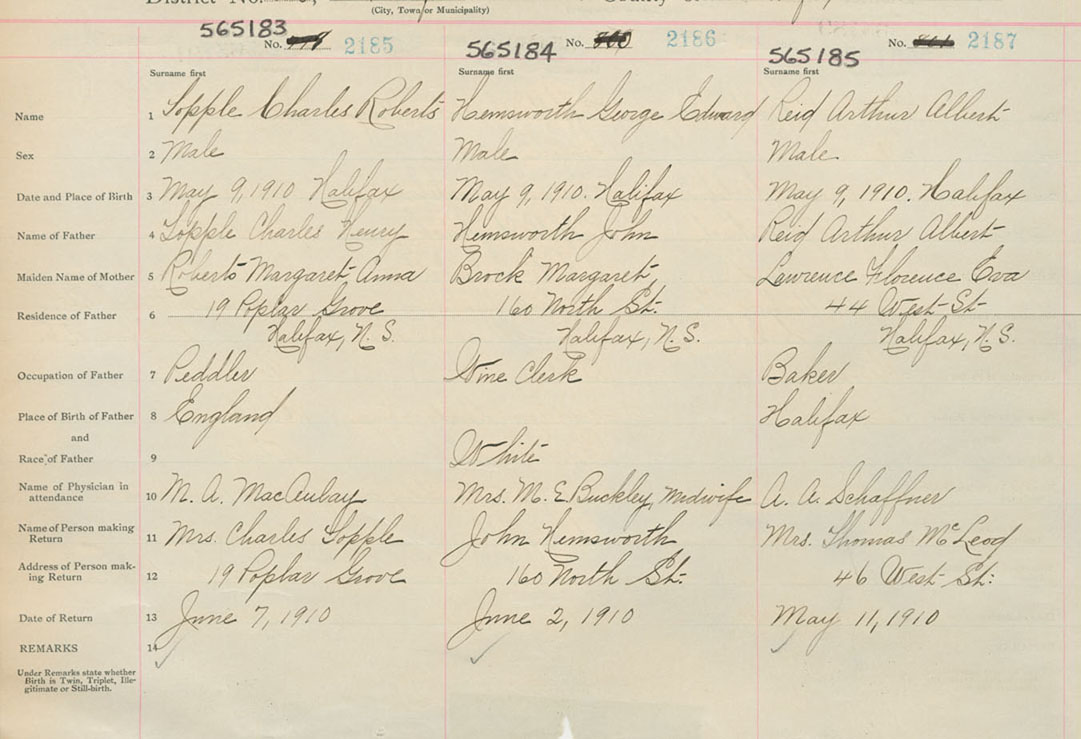 District No.
(City, Town or Municipality)
565183 No. 2185 565184 No. 2186 565185 No. 2187
Surname first Surname first Surname first
Name 1 Sopple Charles Roberts Hemsworth George Edward Reid Arthur Albert
Sex 2 Male Male Male
Date and Place of Birth 3 May 9, 1910 Halifax May 9, 1910. Halifax May 9, 1910. Halifax
Name of Father 4 Sopple Charles Henry Hemsworth John Reid Arthur Albert
Maiden Name of Mother 5 Roberts Margaret Anna Brock Margaret Lawrence Florence Eva
Residence of Father 6 19 Poplar Grove 160 North St. 44 West St
Halifax, N. S. Halifax, N. S. Halifax, N. S.
Occupation of Father 7 Peddler Wine Clerk Baker
Place of Birth of Father 8 England Halifax
and
Race of Father 9 White
Name of Physician in
attendance 10 M. A. MacAulay Mrs. M. E. Buckley, midwife A. A. Schaffner
Name of Person making
Return 11 Mrs. Charles Sopple John Hemsworth Mrs. Thomas McLeod
Address of Person mak-
ing Return 12 19 Poplar Grove 160 North St. 46 West St.
Date of Return 13 June 7, 1910 June 2, 1910 May 11, 1910
REMARKS 14
Under Remarks state whether
Birth is Twin, Triplet, Ille-
gitimate or Still-birth.